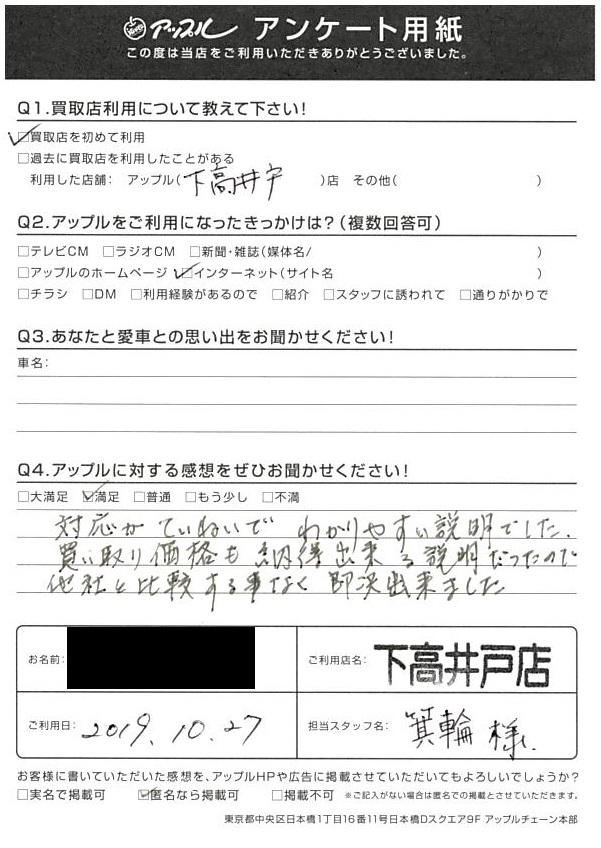 アップル アンケート用紙
この度は当店をご利用いただきありがとうございました。
Q1.買取店利用について教えて下さい!
☑買取店を初めて利用
□過去に買取店を利用したことがある
利用した店舗: アップル(下高井戸)店 その他( )
Q2.アップルをご利用になったきっかけは?(複数回答可)
□テレビCM □ラジオCM □新聞・雑誌(媒体名/ )
□アップルのホームページ ☑インターネット(サイト名 )
□チラシ □DM □利用経験があるので □紹介 □スタッフに誘われて □通りがかりで
Q3.あなたと愛車との思い出をお聞かせください!
車名:
Q4.アップルに対する感想をぜひお聞かせください!
□大満足 ☑満足 □普通 □もう少し □不満
対応がていねいで わかりやすい説明でした.
買い取り価格も納得出来る説明だったので
他社と比較する事なく 即決出来ました
お名前:
ご利用店名: 下高井戸店
ご利用日: 2019.10.27
担当スタッフ名: 箕輪 様
お客様に書いていただいた感想を、アップルHPや広告に掲載させていただいてもよろしいでしょうか?
□実名で掲載可 ☑匿名なら掲載可 □掲載不可 ※ご記入がない場合は匿名での掲載とさせていただきます。
東京都中央区日本橋1丁目16番11号日本橋Dスクエア9F アップルチェーン本部